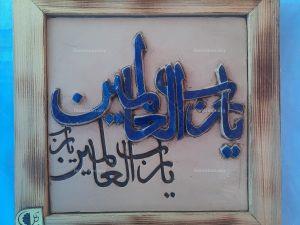 یا رب العالمین
یا رب العالمین یا رب